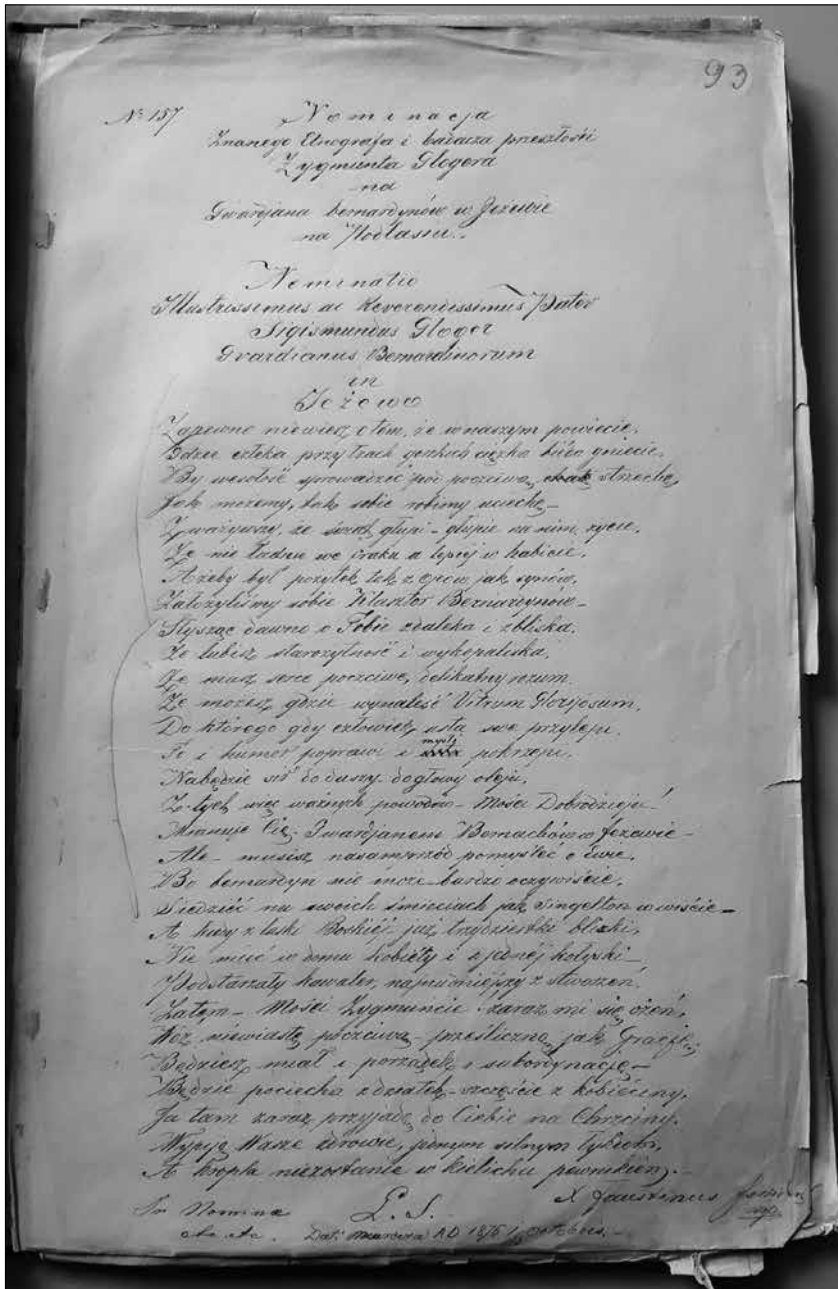 93
№ 157
Nominacja
Znanego Etnografa i badacza przeszłości
Zygmunta Glogera
na
Gwardjana bernardynów w Jeżewie
na Podlasiu.
Nominatio
Illustrissimus ac Reverendissimus Pater
Sigismundus Gloger
Gvardianus Bernardinorum
in
Jeżewo
Zapewne niewiesz o tem, że w naszym powiecie,
Gdzie człeka przy łzach gorzkich ciężka bieda gniecie,
By wesołość sprowadzić pod poczciwą strzechę,
Jak możemy, tak sobie robimy uciechę –
Zważywszy, że świat głupi – głupie na nim życie,
Że nie ładnie we fraku a lepiej w habicie,
Ażeby był pożytek tak z ojców jak synów,
Założyliśmy sobie Klasztor Bernardynów –
Słysząc dawno o Tobie zdaleka i zbliska,
Że lubisz starożytność i wykopaliska,
Że masz serce poczciwe, delikatny rozum
Że możesz gdzie wynaleść Vitrum Gloriosum,
Do którego gdy człowiek usta swe przylepi,
To i humor poprawi i myśl pokrzepi.
Nabędzie sił do duszy do głowy oleju,
Z tych więc ważnych powodów – Mości Dobrodzieju!
Mianuję Cię: Gwardjanem Bernachów w Jeżewie –
Ale – musisz nasamprzód pomyśleć o Ewie,
Bo bernardyn nie może bardzo oczywiście,
Siedzieć na swoich śmieciach jak Singelton w wiście –
A kiedy z łaski Boskiéj, już trzydziestki bliski,
Nie mieć w domu kobiéty i z jednéj kołyski –
Podstarzały kawaler, najnudniejszy z stworzeń,
Zatem – Mości Zygmuncie – zaraz mi się ożeń,
Weź niewiastę poczciwą – prześliczną jak Gracje,
Będziesz miał i porządek i subordynację –
Będzie pociecha z dziatek – szczęście z kobieciny,
Ja tam zaraz przyjadę do Ciebie na Chrzciny.
Wypiję Wasze zdrowie, jednym silnym łykiem,
A kropla niezostanie w kielichu pewnikiem. –
X Faustinus
In Nomine
etc. etc.
L. S.
Dat: AD 1875 Octobris. –